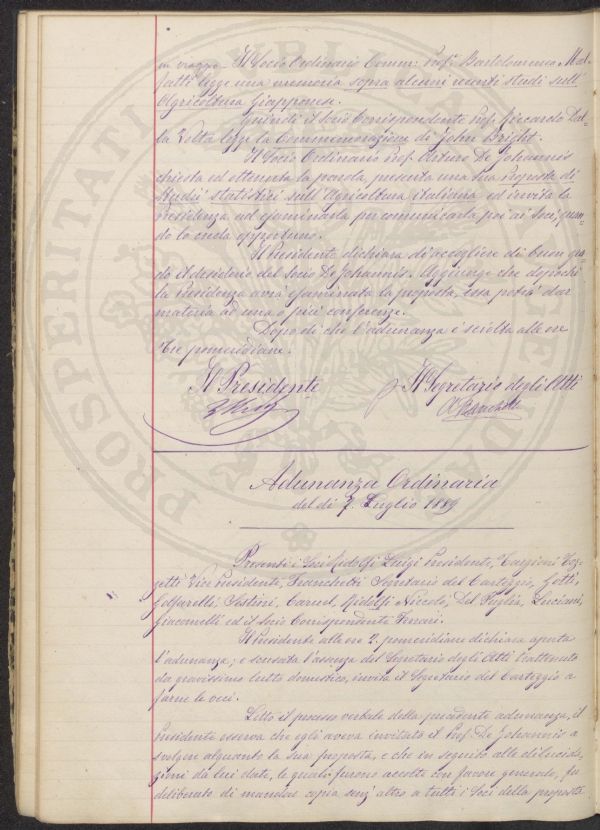 in viaggio. Il Socio Ordinario Comm: Prof. Bartolommeo Mal-
fatti legge una memoria sopra alcuni recenti studi sull'
Agricoltura Giapponese.
Quindi il Socio Corrispondente Prof. Riccardo Dal-
la Volta legge la Commemorazione di John Bright.
Il Socio Ordinario Prof. Arturo De Johannis
chiesta ed ottenuta la parola, presenta una sua Proposta di
Studii statistici sull'Agricoltura italiana ed invita la
Presidenza ad esaminarla per comunicarla poi ai Soci, quan-
do lo creda opportuno.
Il Presidente dichiara di accogliere di buon gra-
do il desiderio del Socio De Johannis. Aggiunge che dopochè
la Presidenza avrà esaminata la proposta, essa potrà dar
materia ad una o più conferenze.
Dopo di che l'adunanza è sciolta alle ore
tre pomeridiane.
Il Presidente Il Segretario degli Atti
Adunanza Ordinaria
del dì 7 Luglio 1889
Presenti i Soci Ridolfi Luigi Presidente, Targioni Toz-
zetti Vice Presidente, Franchetti Segretario del Carteggio, Gotti,
Goffarelli, Sestini, Caruel, Ridolfi Niccolò, Del Puglia, Luciani,
Giacomelli ed il Socio Corrispondente Ferrari.
Il Presidente alle ore 2. pomeridiane dichiara aperta
l'adunanza; e scusata l'assenza del Segretario degli Atti trattenuto
da gravissimo lutto domestico, invita il Segretario del Carteggio a
farne le veci.
Letto il processo verbale della precedente adunanza, il
Presidente osserva che egli aveva invitato il Prof. De Johannis a
svolger alquanto la sua proposta, e che in seguito alle dilucida-
zioni da lui date, le quali furono accolte con favore generale, fu
deliberato di mandar copia senz'altro a tutti i Soci della proposta
PROSPERITATI PUBLICAE